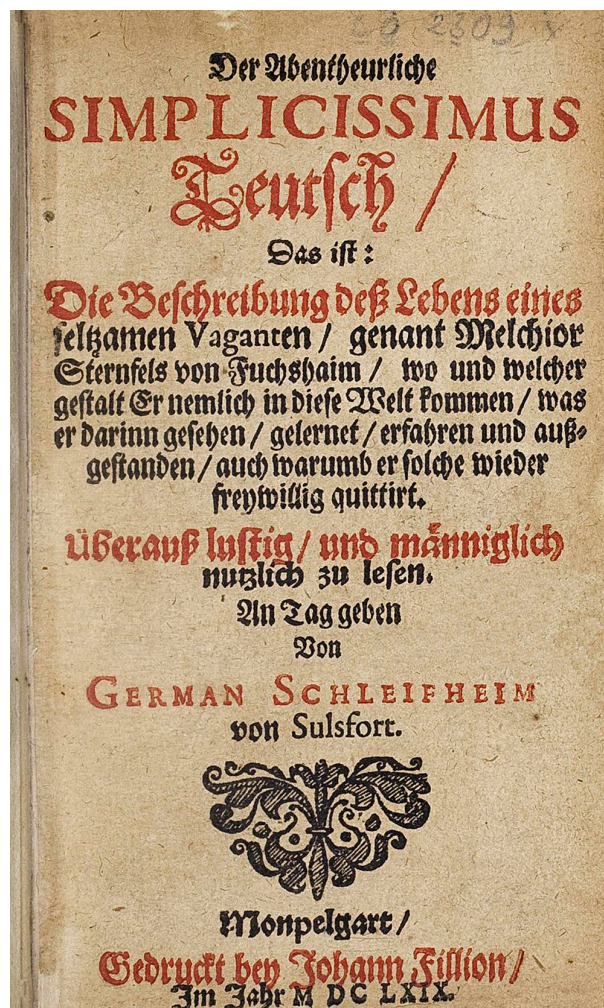 Der Abentheurliche
SIMPLICISSIMUS
Teutsch /
Das ist:
Die Beschreibung deß Lebens eines
seltzamen Vaganten / genant Melchior
Sternfels von Fuchshaim / wo und welcher
gestalt Er nemlich in diese Welt kommen / was
er darinn gesehen / gelernet / erfahren und auß-
gestanden / auch warumb er solche wieder
freywillig quittirt.
Überauß lustig / und männiglich
nutzlich zu lesen.
An Tag geben
Von
GERMAN SCHLEIFHEIM
von Sulsfort.
Monpelgart /
Gedruckt bey Johann Fillion /
Im Jahr M DC LXIX.